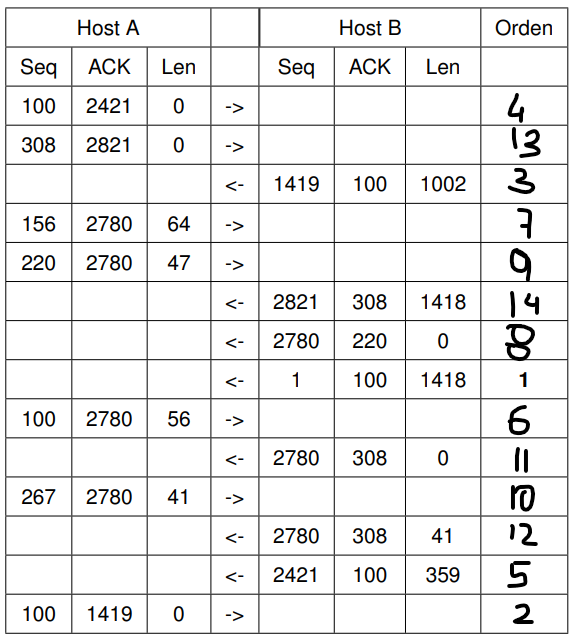 Host A Host B Orden
Seq ACK Len Seq ACK Len
100 2421 0 -> 4
308 2821 0 -> 13
<- 1419 100 1002 3
156 2780 64 -> 7
220 2780 47 -> 9
<- 2821 308 1418 14
<- 2780 220 0 8
<- 1 100 1418 1
100 2780 56 -> 6
<- 2780 308 0 11
267 2780 41 -> 10
<- 2780 308 41 12
<- 2421 100 359 5
100 1419 0 -> 2